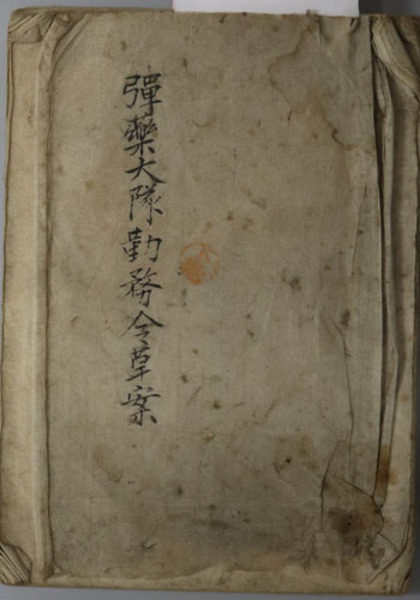 彈藥大隊勤務令草案